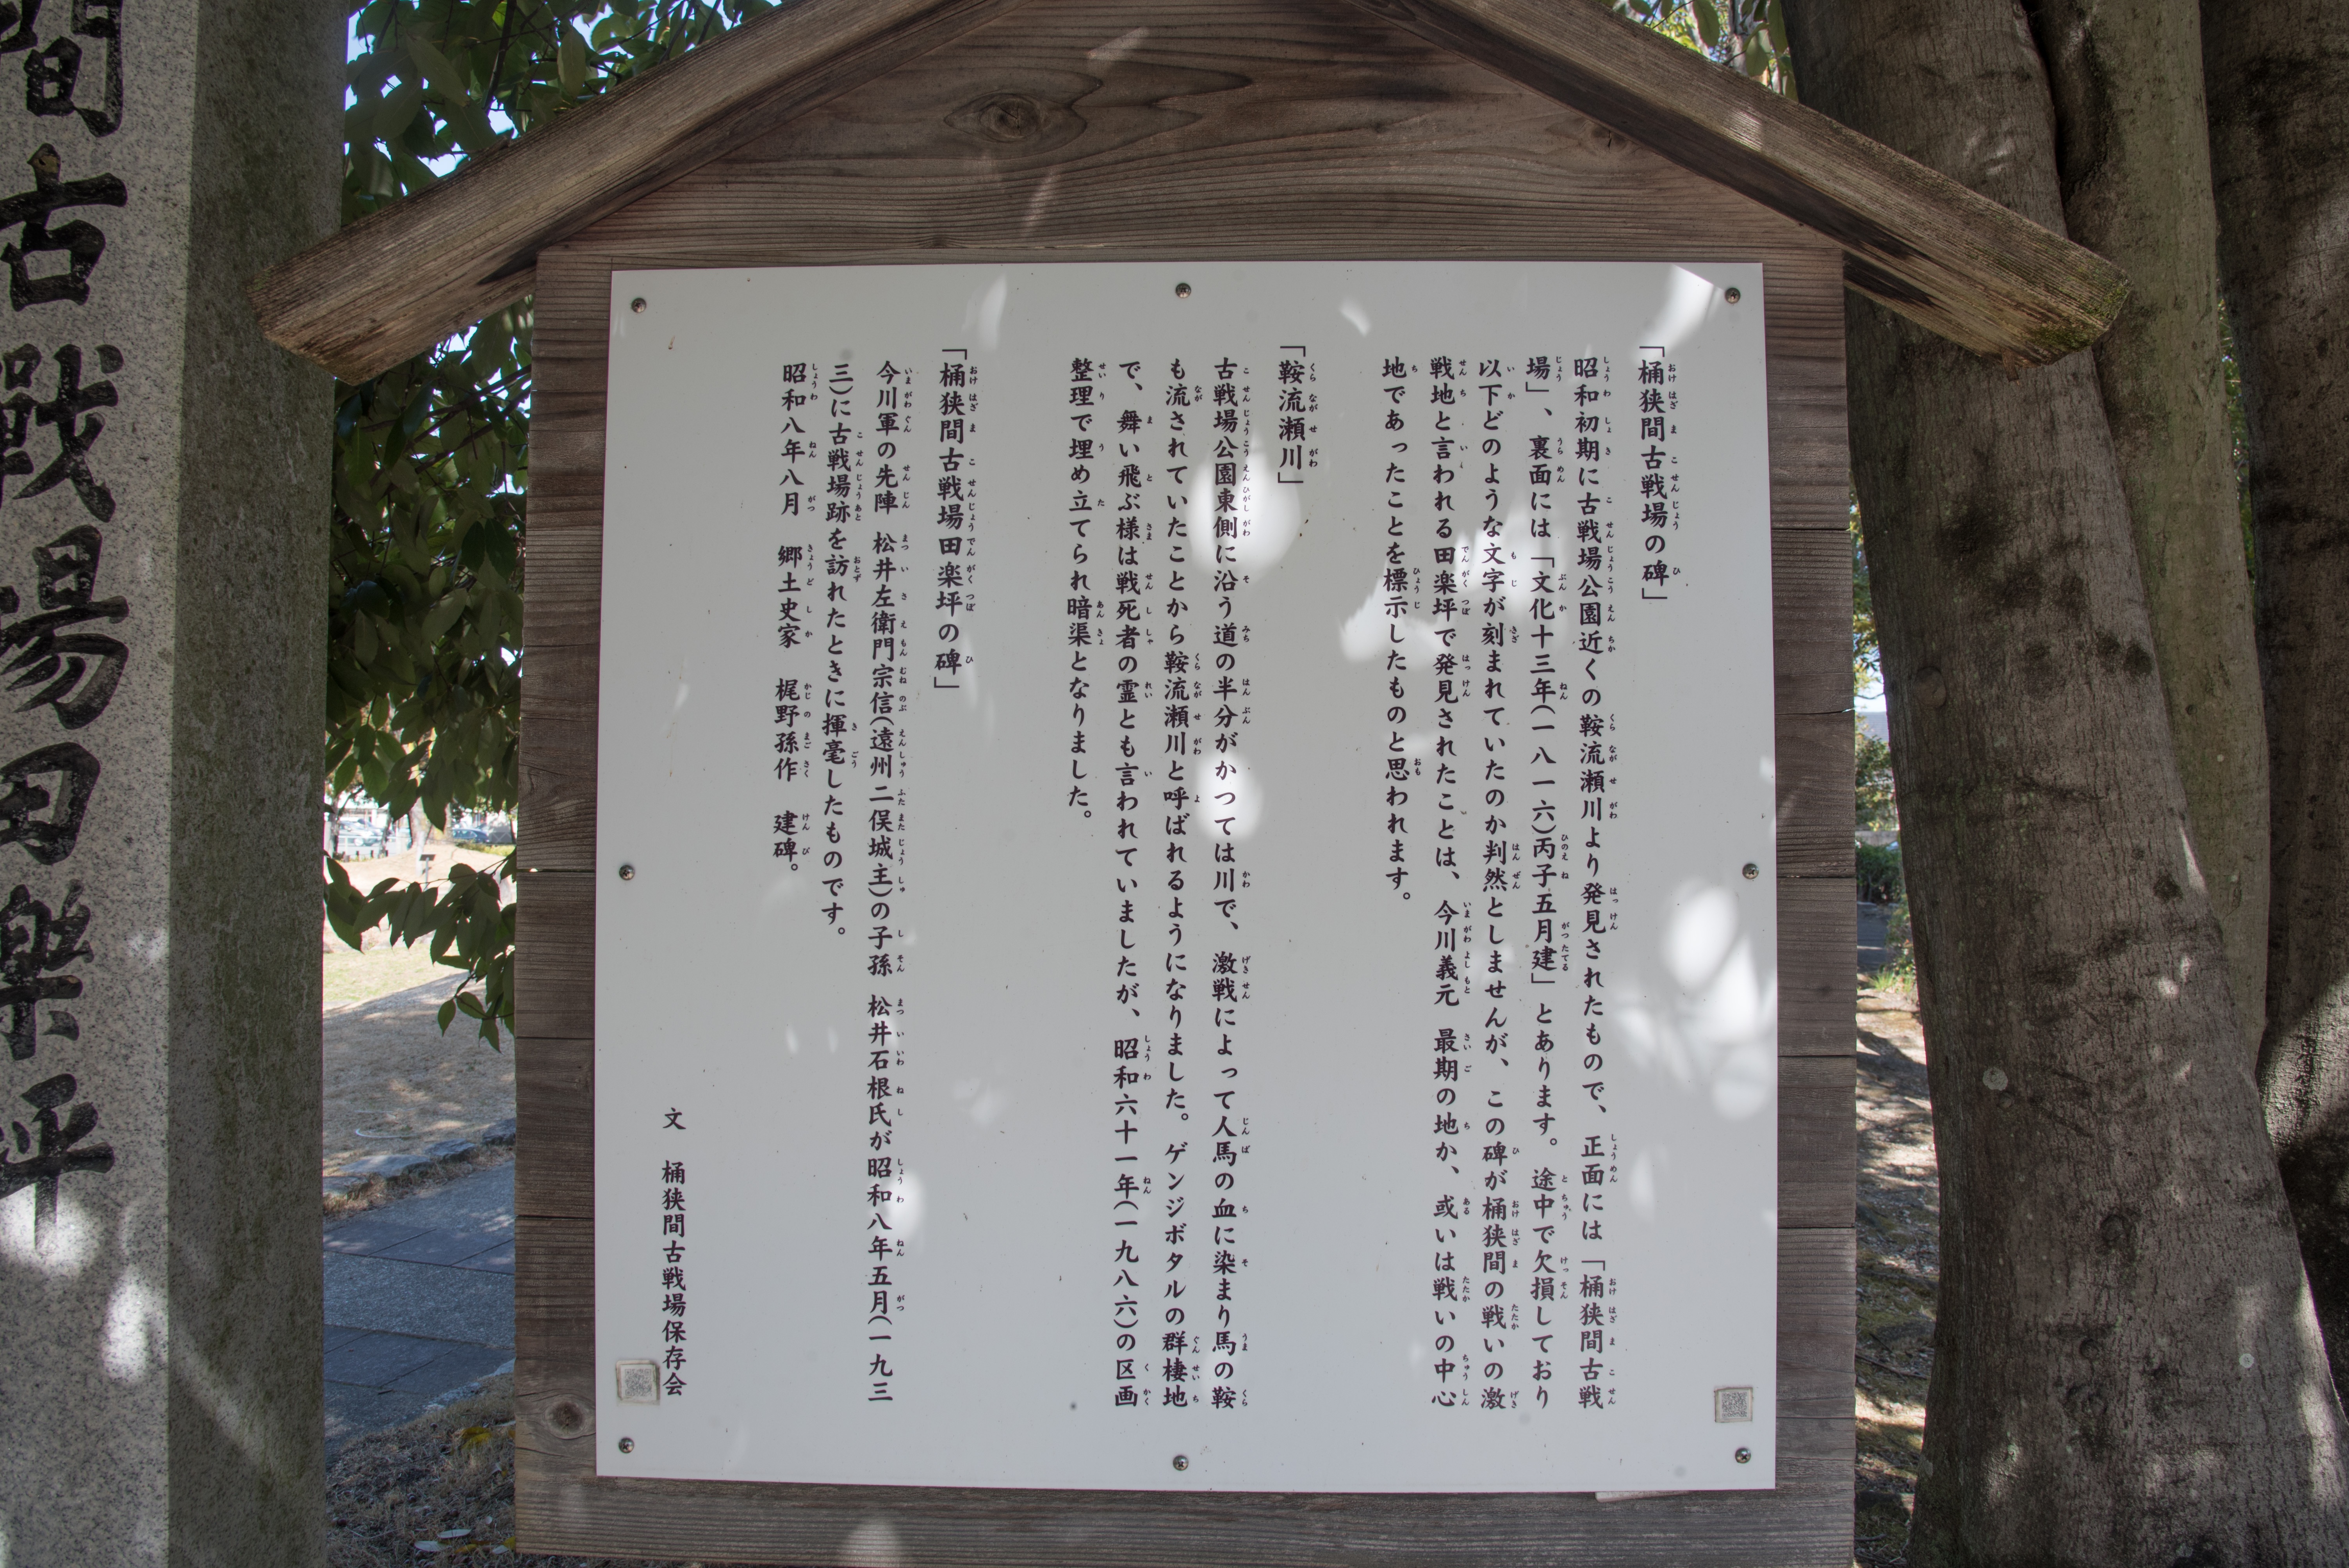 「桶狭間古戦場の碑」
昭和初期に古戦場公園近くの鞍流瀬川より発見されたもので、正面には「桶狭間古戦
場」、裏面には「文化十三年(一八一六)丙子五月建」とあります。途中で欠損しており
以下どのような文字が刻まれていたのか判然としませんが、この碑が桶狭間の戦いの激
戦地と言われる田楽坪で発見されたことは、今川義元 最期の地か、或いは戦いの中心
地であったことを標示したものと思われます。
「鞍流瀬川」
古戦場公園東側に沿う道の半分がかつては川で、激戦によって人馬の血に染まり馬の鞍
も流されていたことから鞍流瀬川と呼ばれるようになりました。ゲンジボタルの群棲地
で、舞い飛ぶ様は戦死者の霊とも言われていましたが、昭和六十一年(一九八六)の区画
整理で埋め立てられ暗渠となりました。
「桶狭間古戦場田楽坪の碑」
今川軍の先陣 松井左衛門宗信(遠州二俣城主)の子孫 松井石根氏が昭和八年五月(一九三
三)に古戦場跡を訪れたときに揮毫したものです。
昭和八年八月 郷土史家 梶野孫作 建碑。
文 桶狭間古戦場保存会
間古戰場田樂坪